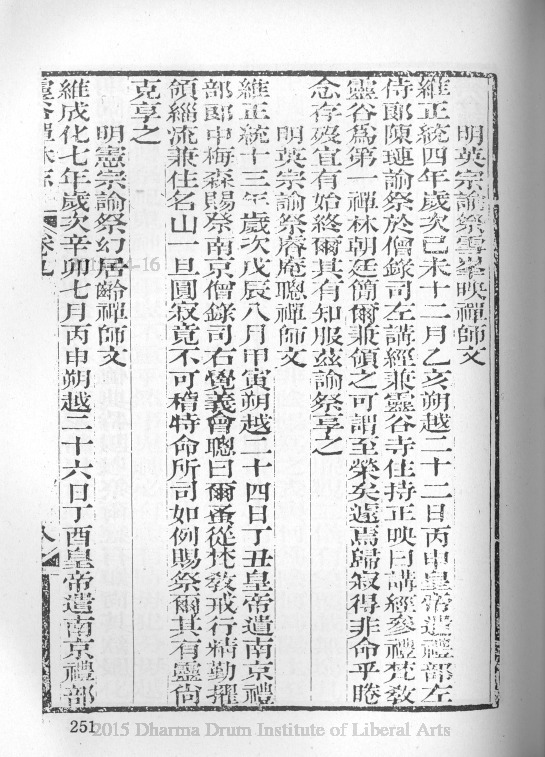 明英宗諭祭雪峯映禪師文
維正統四年歲次己未十二月乙亥朔越二十二日丙申皇帝遣禮部左
侍郎陳璉諭祭於僧錄司左講經兼靈谷寺住持正映曰講經參禮梵教
靈谷爲第一禪林朝廷簡爾兼領之可謂至榮矣遽焉歸寂得非命乎睠
念存歿宜有始終爾其有知服茲諭祭享之
明英宗諭祭庵聰禪師文
維正統十三年歲次戊辰八月甲寅朔越二十四日丁丑皇帝遣南京禮
部郎中梅森賜祭南京僧錄司右覺義會聰曰爾蚤從梵教戒行精勤擢
領緇流兼住名山一旦圓寂竟不可稽特命所司如例賜祭爾其有靈尚
克享之
明憲宗諭祭幻居齡禪師文
維成化七年歲次辛卯七月丙申朔越二十六日丁酉皇帝遣南京禮部
靈谷禪林志
卷九
八
251
2015 Dharma Drum Institute of Liberal Arts